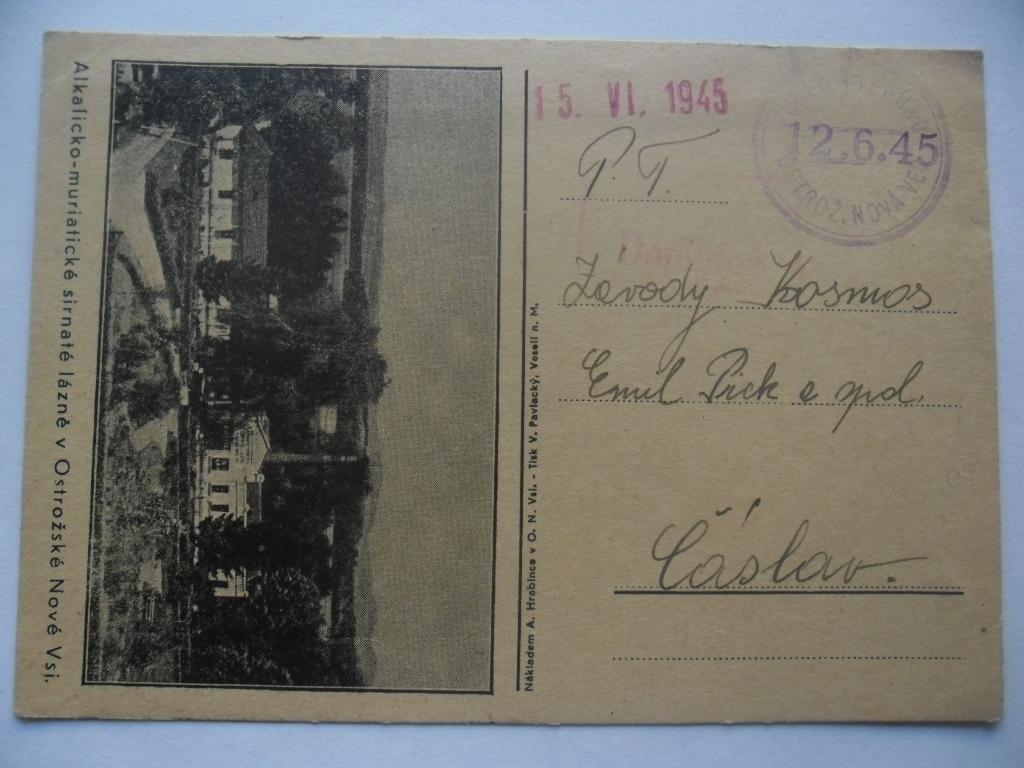 Alkalicko-muriatické sirnaté lázně v Ostrožské Nové Vsi.
Nákladem A. Hrabince v O. N. Vsi. - Tisk V. Pavlacký, Veselí n. M.
15. VI. 1945
12.6.45
OSTROŽ. NOVÁ VES
P. T.
Závody Kosmos
Emil Pick a spol.
Čáslav.